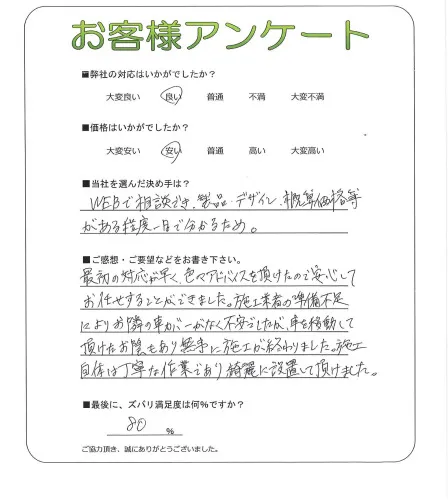 お客様アンケート
■弊社の対応はいかがでしたか?
大変良い 良い 普通 不満 大変不満
■価格はいかがでしたか?
大変安い 安い 普通 高い 大変高い
■当社を選んだ決め手は?
WEBで相談でき、製品・デザイン、概算価格等
がある程度一目で分かるため。
■ご感想・ご要望などをお書き下さい。
最初の対応が早く、色々アドバイスを頂けたので安心して
お任せすることができました。施工業者の準備不足
によりお隣の車が なく不安でしたが、車を移動して
頂けたお陰もあり無事に施工が終わりました。施工
自体は丁寧な作業であり綺麗に設置して頂けました。
■最後に、ズバリ満足度は何%ですか?
80 %
ご協力頂き、誠にありがとうございました。